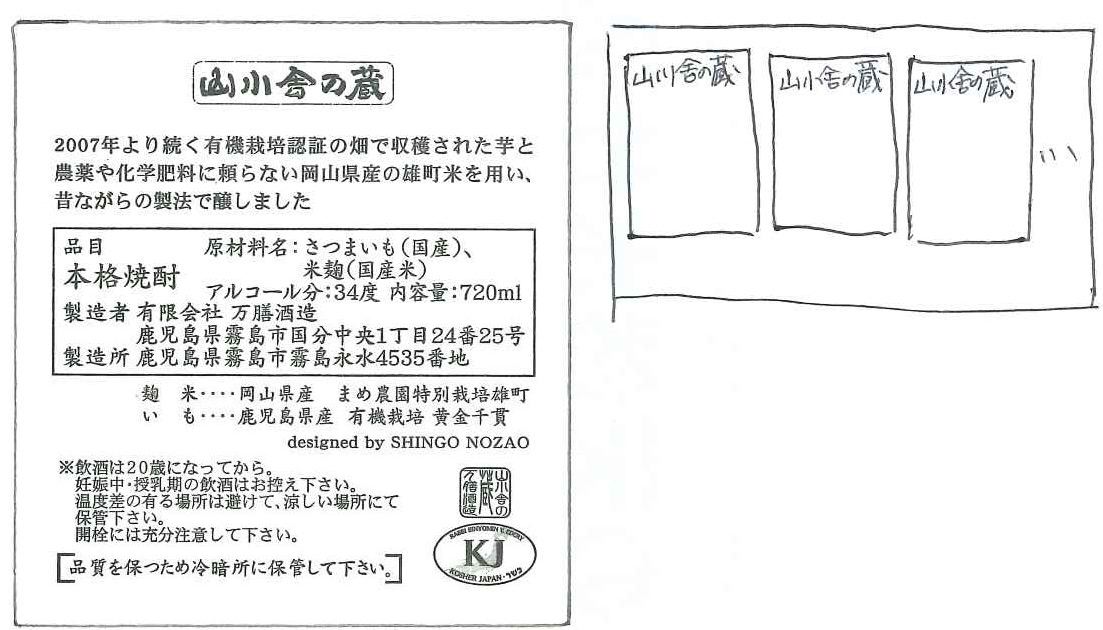 山小舎の蔵
2007年より続く有機栽培認証の畑で収穫された芋と
農薬や化学肥料に頼らない岡山県産の雄町米を用い、
昔ながらの製法で醸しました
品目
本格焼酎
原材料名：さつまいも（国産）、
米麹（国産米）
アルコール分：34度 内容量：720ml
製造者 有限会社 万膳酒造
鹿児島県霧島市国分中央1丁目24番25号
製造所 鹿児島県霧島市霧島永水4535番地
麹　米‥‥岡山県産　まめ農園特別栽培雄町
い　も‥‥鹿児島県産 有機栽培 黄金千貫
designed by SHINGO NOZAO
※飲酒は20歳になってから。
妊娠中・授乳期の飲酒はお控え下さい。
温度差の有る場所は避けて、涼しい場所にて
保管下さい。
開栓には充分注意して下さい。
［品質を保つため冷暗所に保管して下さい。］
山小舎の
蔵
万膳酒造
RABBI BINYOMIN Y. EDERY
KJ
KOSHER JAPAN・כשר
山小舎の蔵
山小舎の蔵
山小舎の蔵
…